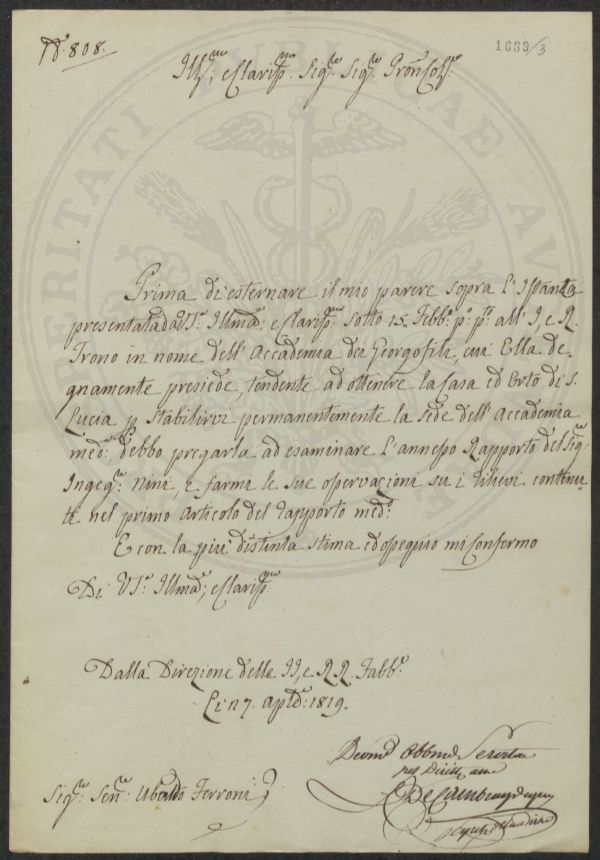 N.° 808.
1689/3
Ill.mo; e Clariss.mo Sig.re Sig.re Pron. Col.mo
Prima di esternare il mio parere sopra l'Istanza
presentata da VS. Illma; e Clariss.ma sotto 15. Febb.o p.o p.to all'I, e R.
Trono in nome dell'Accademia dei Georgofili, cui Ella de
gnamente presiede, tendente ad ottenere la Casa ed Orto di S.
Lucia p stabilirvi permanentemente la sede dell'Accademia
med.a debbo pregarla ad esaminare l'annesso Rapporto del Sig.re
Ingeg.re Nini, e farmi le sue osservazioni su i rilievi contenu
ti nel primo articolo del rapporto med.o
E con la più distinta stima ed ossequio mi confermo
Di VS. Illma; e Clariss.ma
Dalla Direzione delle II, e RR. Fabb.e
Li 1819.
Devmo Obbmo Servitore
Sig.re Sen.re Ubaldo Ferroni